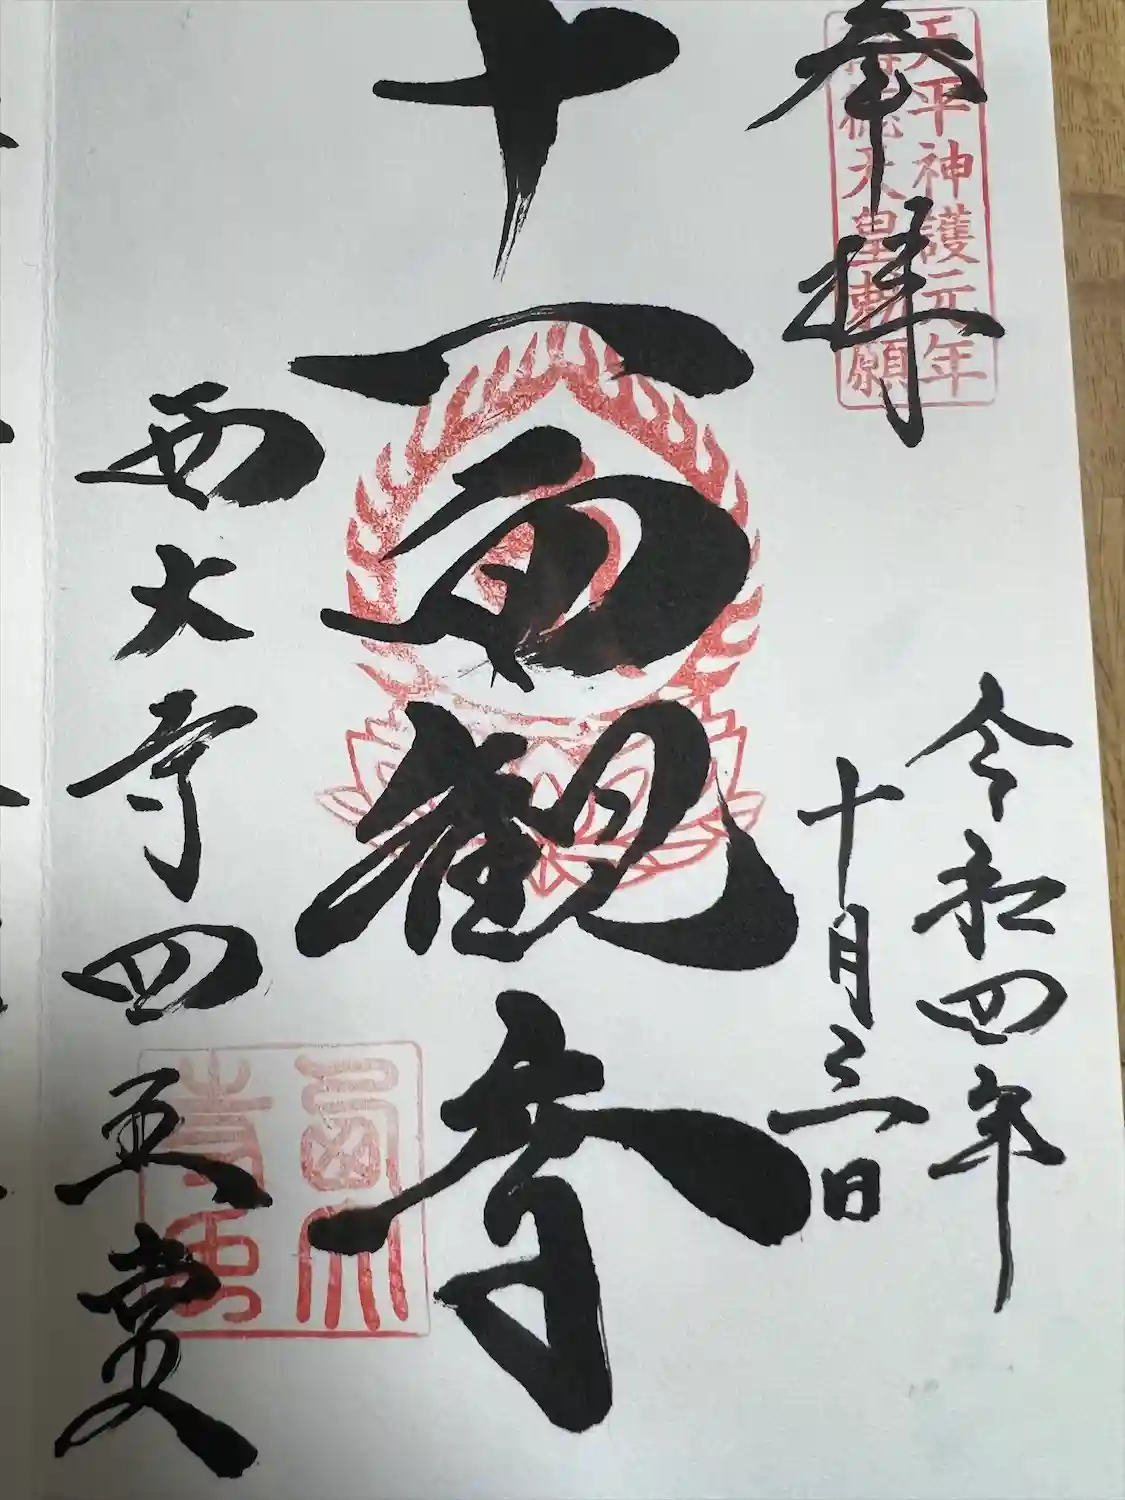 奉拝
天平神護元年
稱徳天皇勅願
令和四年
十月三日
十一面観音
西大寺四王堂